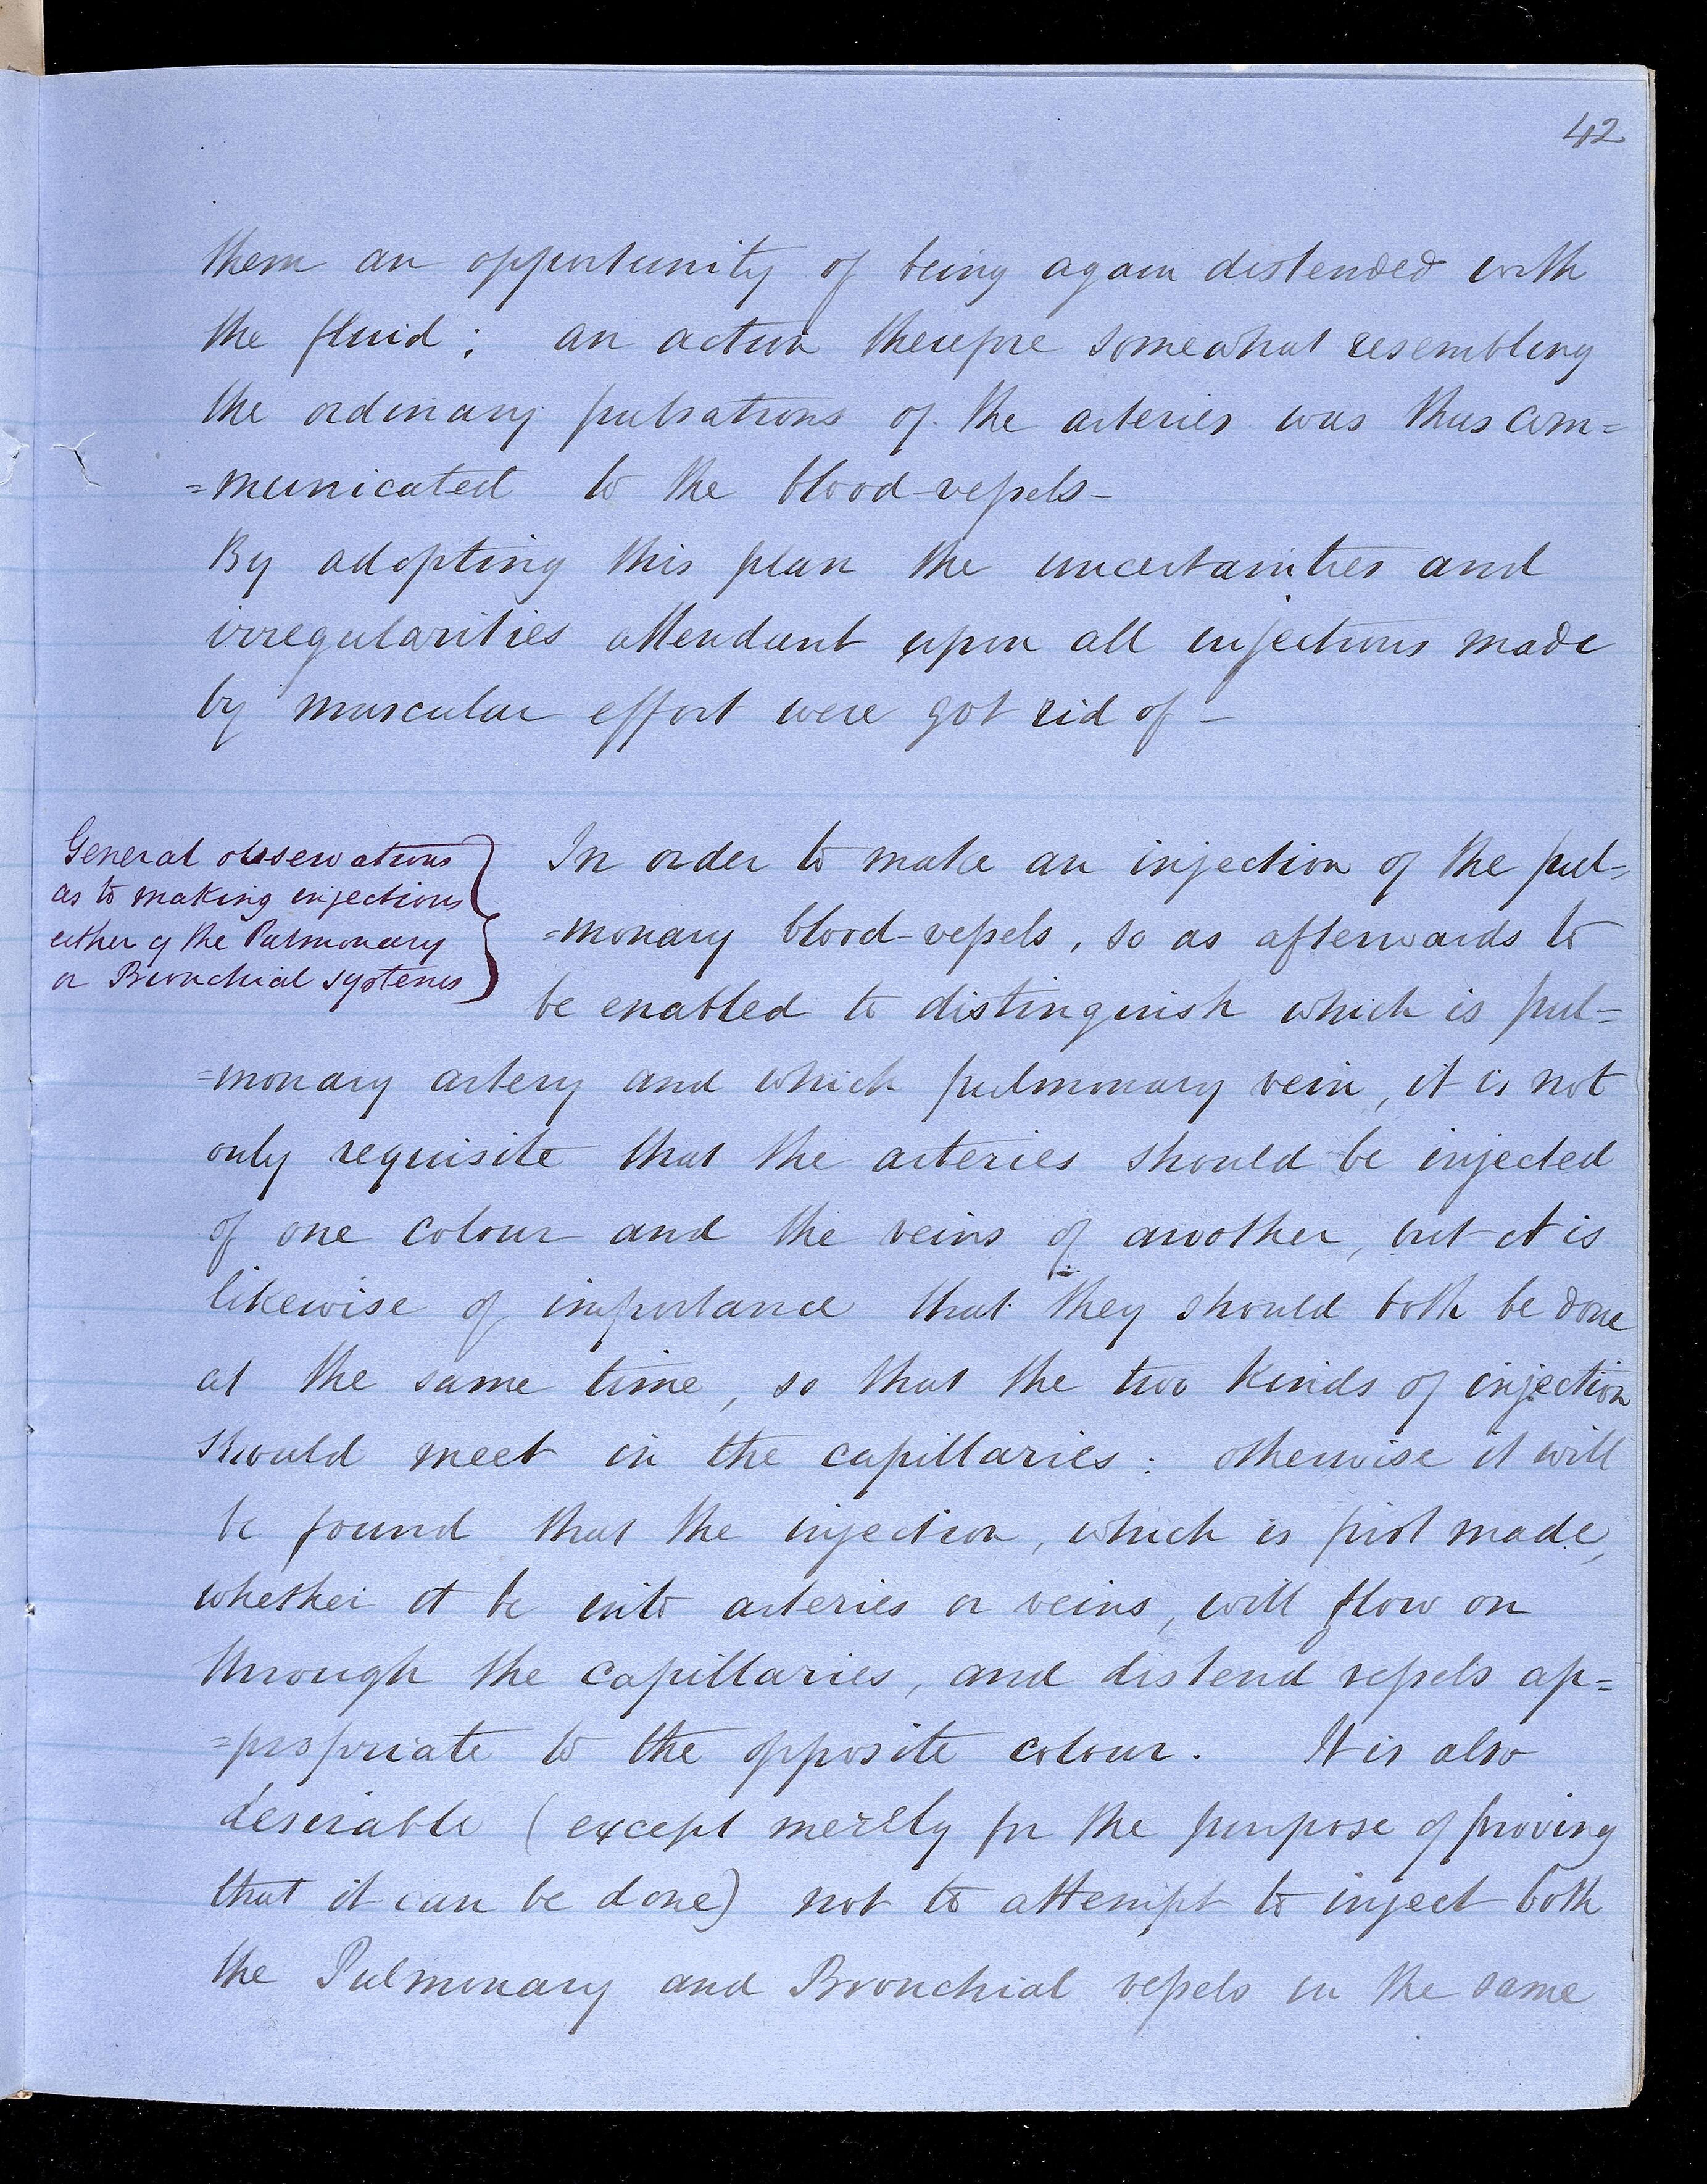 42
them an opportunity of being again distended with
the fluid; an action therefore somewhat resembling
the ordinary pulsations of the arteries was thus com=
=municated to the blood-vessels-
By adopting this plan the uncertainties and
irregularities attendant upon all injections made
by muscular effort were got rid of -
General observations
as to making injections
either of the Pulmonary
or Bronchial systems
In order to make an injection of the pul=
=monary blood-vessels, so as afterwards to
be enabled to distinguish which is pul=
=monary artery and which pulmonary vein, it is not
only requisite that the arteries should be injected
of one colour and the veins of another, but it is
likewise of importance that they should both be done
at the same time, so that the two kinds of injection
should meet in the capillaries: otherwise it will
be found that the injection, which is first made,
whether it be into arteries or veins, will flow on
through the capillaries, and distend vessels ap=
=propriate to the opposite colour. It is also
desirable (except merely for the purpose of proving
that it can be done) not to attempt to inject both
the Pulmonary and Bronchial vessels in the same